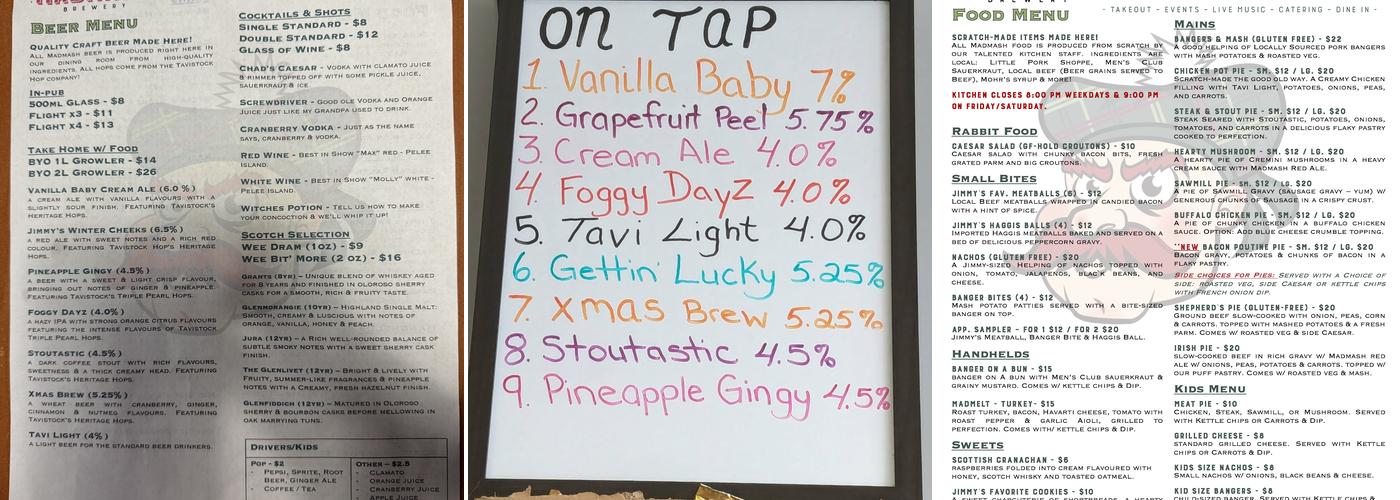 BREWERY
BEER MENU
QUALITY CRAFT BEER MADE HERE!
ALL MADMASH BEER IS PRODUCED RIGHT HERE IN
OUR DINING ROOM FROM HIGH-QUALITY
INGREDIENTS. ALL HOPS COME FROM THE TAVISTOCK
HOP COMPANY!
IN-PUB
500ML GLASS - $8
FLIGHT X3 - $11
FLIGHT X4 - $13
TAKE HOME W/ FOOD
BYO 1L GROWLER - $14
BYO 2L GROWLER - $26
VANILLA BABY CREAM ALE (6.0 %)
A CREAM ALE WITH VANILLA FLAVOURS WITH A
SLIGHTLY SOUR FINISH. FEATURING TAVISTOCK'S
HERITAGE HOPS.
JIMMY'S WINTER CHEEKS (6.5%)
A RED ALE WITH SWEET NOTES AND A RICH RED
COLOUR. FEATURING TAVISTOCK HOP'S HERITAGE
HOPS.
PINEAPPLE GINGY (4.5%)
A BEER WITH A SWEET & LIGHT CRISP FLAVOUR,
BRINGING OUT NOTES OF GINGER & PINEAPPLE.
FEATURING TAVISTOCK'S TRIPLE PEARL HOPS.
FOGGY DAYZ (4.0%)
A HAZY IPA WITH STRONG ORANGE CITRUS FLAVOURS
FEATURING THE INTENSE FLAVOURS OF TAVISTOCK
TRIPLE PEARL HOPS.
STOUTASTIC (4.5%)
A DARK COFFEE STOUT WITH RICH FLAVOURS,
SWEETNESS & A THICK CREAMY HEAD. FEATURING
TAVISTOCK'S HERITAGE HOPS.
XMAS BREW (5.25%)
A WHEAT BEER WITH CRANBERRY, GINGER,
CINNAMON & NUTMEG FLAVOURS. FEATURING
TAVISTOCK'S HERITAGE HOPS.
TAVI LIGHT (4%)
A LIGHT BEER FOR THE STANDARD BEER DRINKERS.
COCKTAILS & SHOTS
SINGLE STANDARD - $8
DOUBLE STANDARD - $12
GLASS OF WINE - $8
CHAD'S CAESAR - VODKA WITH CLAMATO JUICE
& RIMMER TOPPED OFF WITH SOME PICKLE JUICE,
SAUERKRAUT & ICE
SCREWDRIVER - GOOD OLE VODKA AND ORANGE
JUICE JUST LIKE MY GRANDPA USED TO DRINK.
CRANBERRY VODKA - JUST AS THE NAME
SAYS, CRANBERRY & VODKA.
RED WINE - BEST IN SHOW "MAX" RED - PELEE
ISLAND.
WHITE WINE - BEST IN SHOW "MOLLY" WHITE -
PELEE ISLAND.
WITCHES POTION - TELL US HOW TO MAKE
YOUR CONCOCTION & WE'LL WHIP IT UP!
SCOTCH SELECTION
WEE DRAM (1OZ) - $9
WEE BIT' MORE (2 OZ) - $16
GRANTS (8YR) - UNIQUE BLEND OF WHISKEY AGED
FOR 8 YEARS AND FINISHED IN OLOROSO SHERRY
CASKS FOR A SMOOTH, RICH & FRUITY TASTE.
GLENMORANGIE (10YR) - HIGHLAND SINGLE MALT:
SMOOTH, CREAMY & LUSCIOUS WITH NOTES OF
ORANGE, VANILLA, HONEY & PEACH.
JURA (12YR) - A RICH WELL-ROUNDED BALANCE OF
SUBTLE SMOKY NOTES WITH A SWEET SHERRY CASK
FINISH.
THE GLENLIVET (12YR) - BRIGHT & LIVELY WITH
FRUITY, SUMMER-LIKE FRAGRANCES & PINEAPPLE
NOTES WITH A CREAMY, FRESH HAZELNUT FINISH.
GLENFIDDICH (12YR) - MATURED IN OLOROSO
SHERRY & BOURBON CASKS BEFORE MELLOWING IN
OAK MARRYING TUNS.
DRIVERS/KIDS
POP - $2
- PEPSI, SPRITE, ROOT
BEER, GINGER ALE
- COFFEE / TEA
OTHER - $2.5
- CLAMATO
- ORANGE JUICE
- CRANBERRY JUICE
- APPLE JUICE
ON TAP
1. Vanilla Baby 7%
2. Grapefruit Peel 5.75%
3. Cream Ale 4.0%
4. Foggy DayZ 4.0%
5. Tavi Light 4.0%
6. Gettin' Lucky 5.25%
7. Xmas Brew 5.25%
8. Stoutastic 4.5%
9. Pineapple Gingy 4.5%
BREWERY
- TAKEOUT - EVENTS - LIVE MUSIC - CATERING - DINE IN -
FOOD MENU
SCRATCH-MADE ITEMS MADE HERE!
ALL MADMASH FOOD IS PRODUCED FROM SCRATCH BY
OUR TALENTED KITCHEN STAFF. INGREDIENTS ARE
LOCAL: LITTLE PORK SHOPPE, MEN'S CLUB
SAUERKRAUT, LOCAL BEEF (BEER GRAINS SERVED TO
BEEF), MOHR'S SYRUP & MORE
KITCHEN CLOSES 8:00 PM WEEKDAYS & 9:00 PM
ON FRIDAY/SATURDAY.
RABBIT FOOD
CAESAR SALAD (GF-HOLD CROUTONS) - $10
CAESAR SALAD WITH CHUNKY BACON BITS, FRESH
GRATED PARM AND BIG CROUTONS.
SMALL BITES
JIMMY'S FAV. MEATBALLS (6) - $12
LOCAL BEEF MEATBALLS WRAPPED IN CANDIED BACON
WITH A HINT OF SPICE.
JIMMY'S HAGGIS BALLS (4) - $12
IMPORTED HAGGIS MEATBALLS BAKED AND SERVED ON A
BED OF DELICIOUS PEPPERCORN GRAVY.
NACHOS (GLUTEN FREE) - $20
A JIMMY-SIZED HELPING OF NACHOS TOPPED WITH
ONION, TOMATO, JALAPENOS, BLACK BEANS, AND
CHEESE.
BANGER BITES (4) - $12
MASH POTATO PATTIES SERVED WITH A BITE-SIZED
BANGER ON TOP.
APP. SAMPLER - FOR 1 $12 / FOR 2 $20
JIMMY'S MEATBALL, BANGER BITE & HAGGIS BALL.
HANDHELDS
BANGER ON A BUN - $15
BANGER ON A BUN WITH MEN'S CLUB SAUERKRAUT &
GRAINY MUSTARD. COMES W/ KETTLE CHIPS & DIP.
MADMELT - TURKEY- $15
ROAST TURKEY, BACON, HAVARTI CHEESE, TOMATO WITH
ROAST PEPPER & GARLIC AIOLI, GRILLED TO
PERFECTION. COMES WITH/ KETTLE CHIPS & DIP.
SWEETS
SCOTTISH CRANACHAN - $6
RASPBERRIES FOLDED INTO CREAM FLAVOURED WITH
HONEY, SCOTCH WHISKY AND TOASTED OATMEAL.
JIMMY'S FAVORITE COOKIES - $10
MAINS
BANGERS & MASH (GLUTEN FREE) - $22
A GOOD HELPING OF LOCALLY SOURCED PORK BANGERS
WITH MASH POTATOES & ROASTED VEG.
CHICKEN POT PIE - SM. $12 / LG. $20
SCRATCH-MADE THE GOOD OLD WAY. A CREAMY CHICKEN
FILLING WITH TAVI LIGHT, POTATOES, ONIONS, PEAS,
AND CARROTS.
STEAK & STOUT PIE - SM. $12 / LG. $20
STEAK SEARED WITH STOUTASTIC, POTATOES, ONIONS,
TOMATOES, AND CARROTS IN A DELICIOUS FLAKY PASTRY
COOKED TO PERFECTION.
HEARTY MUSHROOM - SM. $12 / LG. $20
A HEARTY PIE OF CREMINI MUSHROOMS IN A HEAVY
CREAM SAUCE WITH MADMASH RED ALE.
SAWMILL PIE - SM. $12 / LG. $20
A PIE OF SAWMILL GRAVY (SAUSAGE GRAVY - YUM) W/
GENEROUS CHUNKS OF SAUSAGE IN A CRISPY CRUST.
BUFFALO CHICKEN PIE - SM. $12 / LG. $20
A PIE OF CHUNKY CHICKEN IN A BUFFALO CHICKEN
SAUCE. OPTION: ADD BLUE CHEESE CRUMBLE TOPPING.
**NEW BACON POUTINE PIE - SM. $12 / LG. $20
BACON GRAVY, POTATOES & CHUNKS OF BACON IN A
FLAKY PASTRY.
SIDE CHOICES FOR PIES: SERVED WITH A CHOICE OF
SIDE: ROASTED VEG, SIDE CAESAR OR KETTLE CHIPS
WITH FRENCH ONION DIP.
SHEPHERD'S PIE (GLUTEN-FREE) - $20
GROUND BEEF SLOW-COOKED WITH ONION, PEAS, CORN
& CARROTS. TOPPED WITH MASHED POTATOES & A FRESH
PARM. COMES W/ ROASTED VEG & SIDE CAESAR.
IRISH PIE - $20
SLOW-COOKED BEEF IN RICH GRAVY W/ MADMASH RED
ALE W/ ONIONS, PEAS, POTATOES & CARROTS. TOPPED W/
OUR PUFF PASTRY. COMES W/ ROASTED VEG & MASH.
KIDS MENU
MEAT PIE - $10
CHICKEN, STEAK, SAWMILL, OR MUSHROOM. SERVED W/
KETTLE CHIPS OR CARROTS & DIP.
GRILLED CHEESE - $8
STANDARD GRILLED CHEESE. SERVED WITH KETTLE
CHIPS OR CARROTS & DIP.
KIDS SIZE NACHOS - $8
SMALL NACHOS W/ ONIONS, BLACK BEANS & CHEESE.
KID SIZE BANGERS - $8